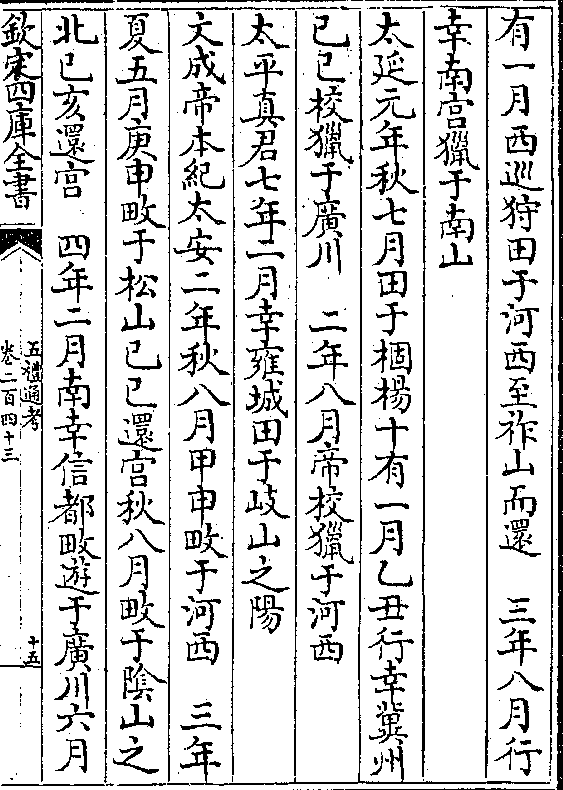 有一月西巡狩田于河西至祚山而還　三年八月行
幸南宫獵于南山
太延元年秋七月田于棝楊十有一月乙丑行幸冀州
己巳校獵于廣川　二年八月帝校獵于河西
太平真君七年二月幸雍城田于岐山之陽
文成帝本紀太安二年秋八月甲申畋于河西　三年
夏五月庚申畋于松山己巳還宫秋八月畋于隂山之
北己亥還宫　四年二月南幸信都畋遊于廣川六月
欽定四庫全書
五禮通考
卷二百四十三
十五